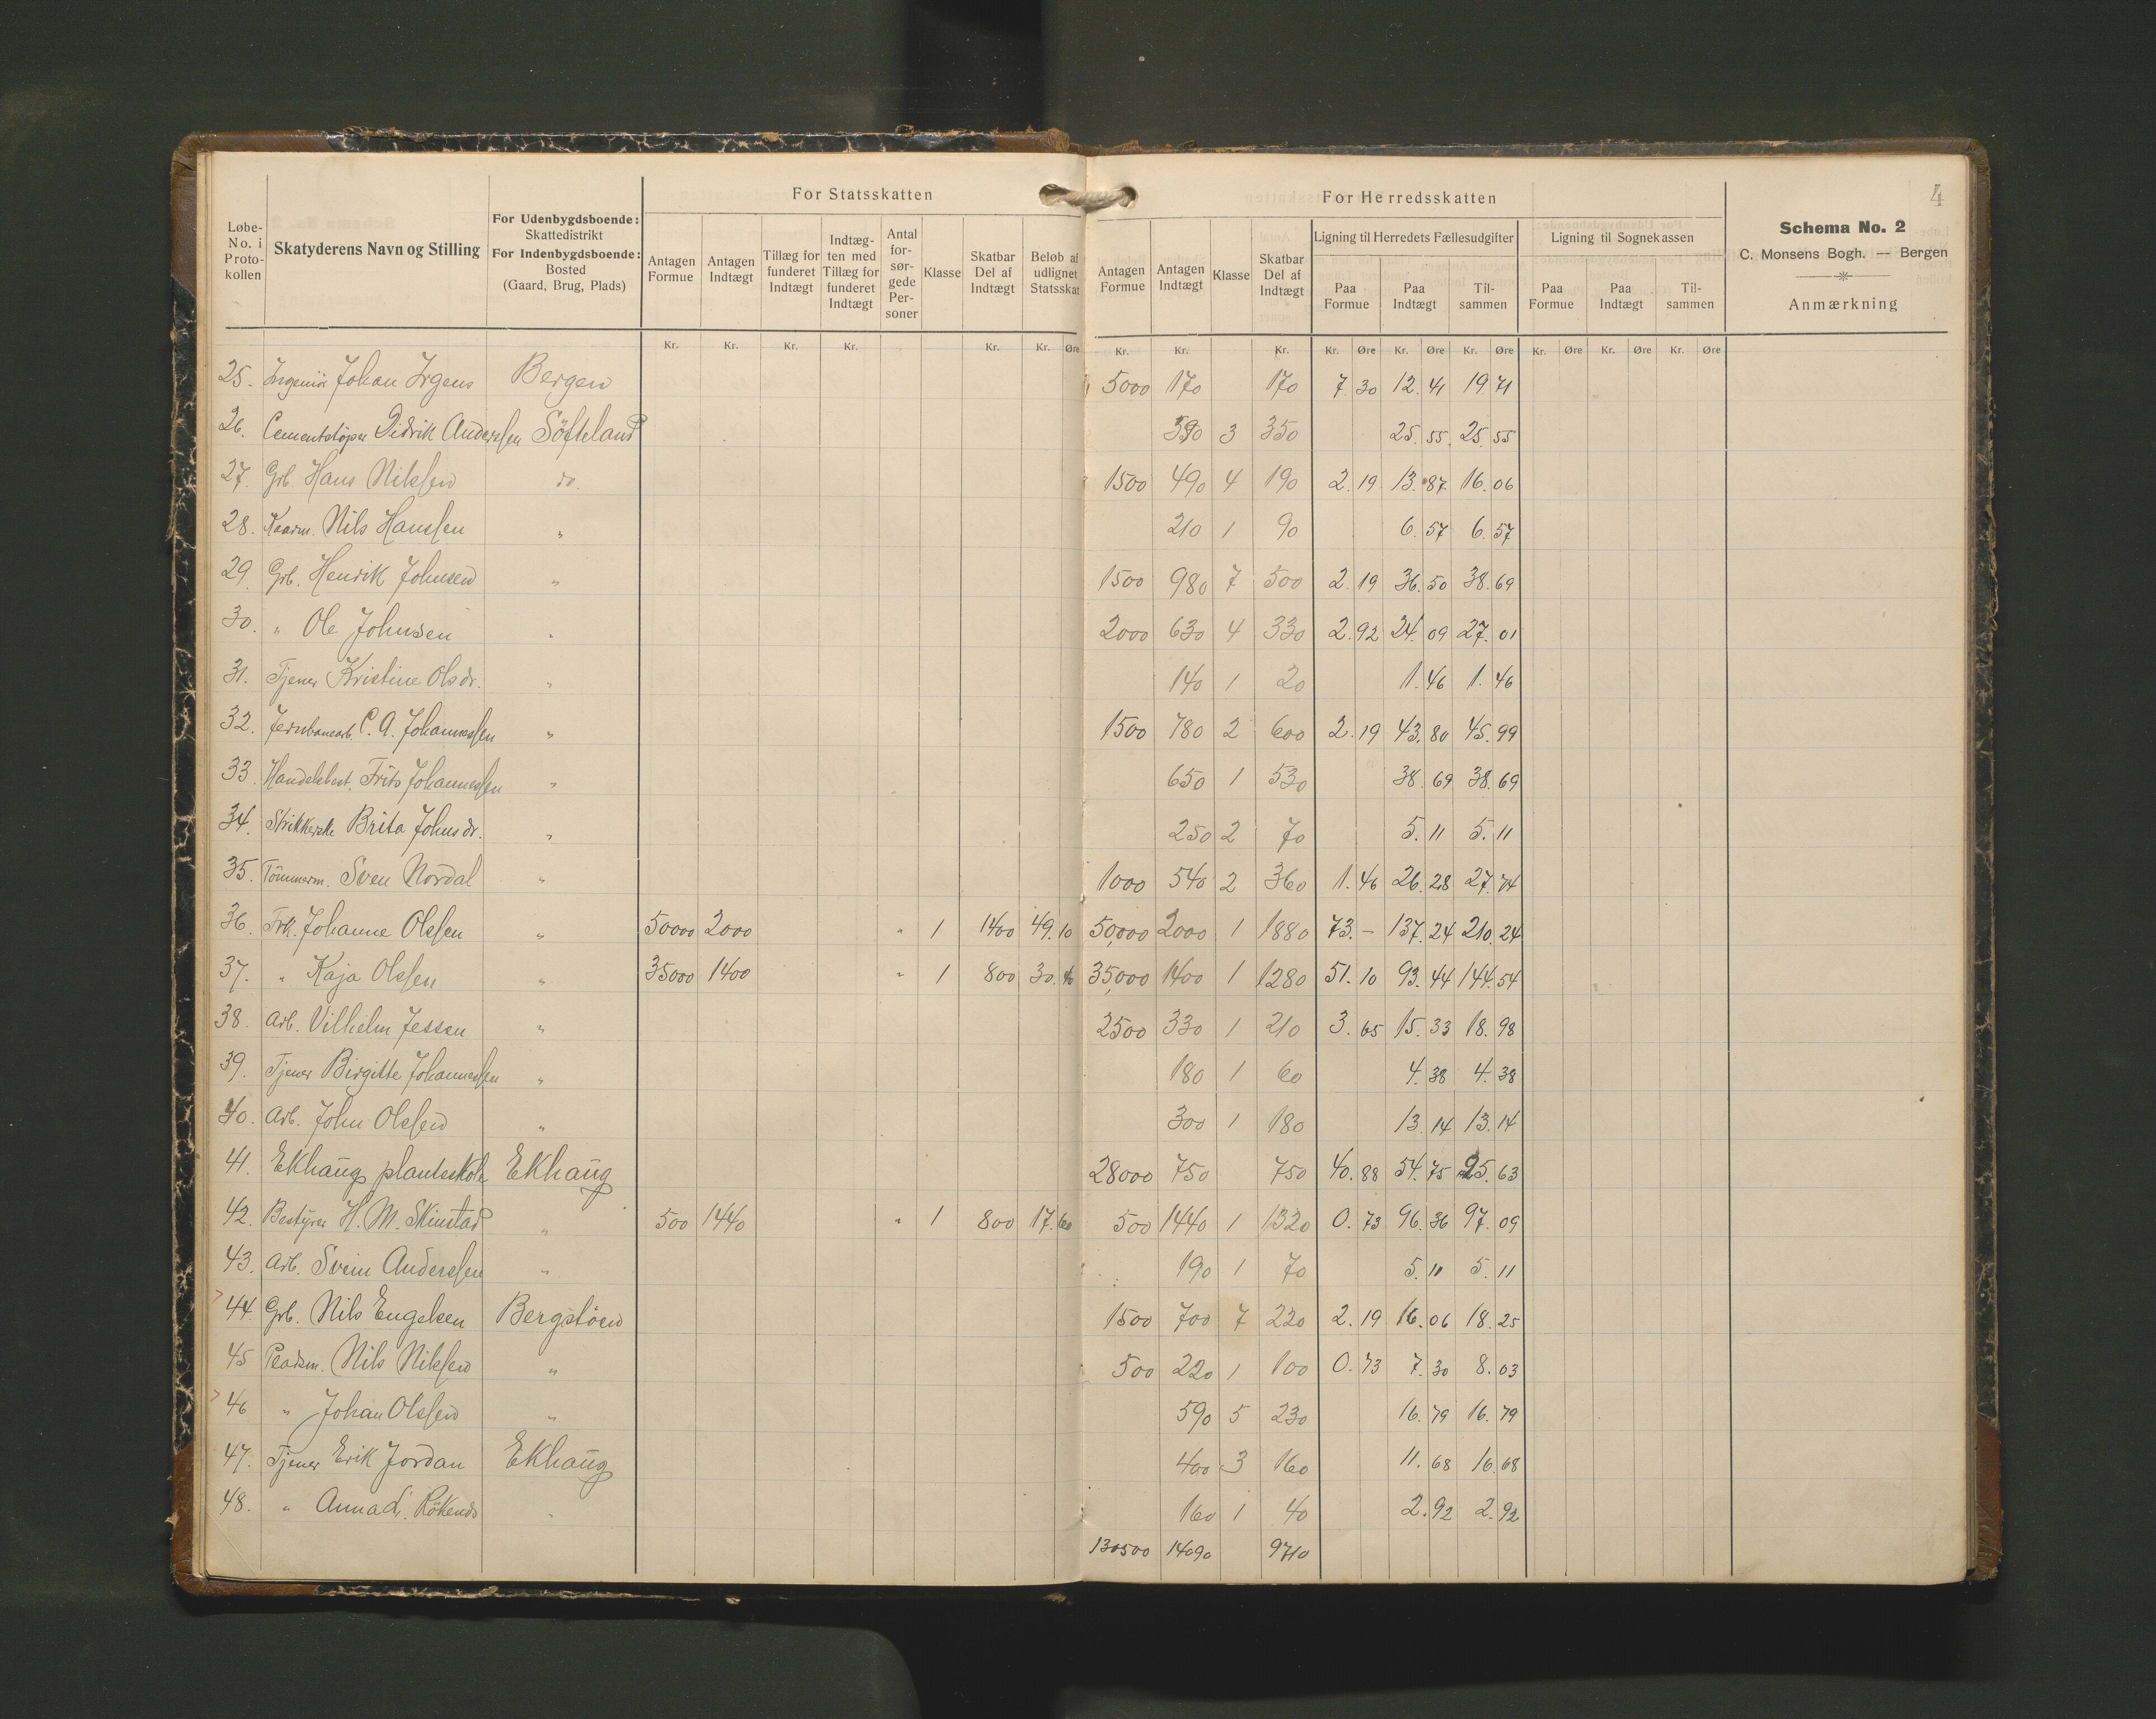 For Statsskatten For Herredsskatten 4
Løbe-No. i Proto-kollen Skatyderens Navn og Stilling For Udenbygdsboende: Skattedistrikt For Indenbygdsboende: Bosted (Gaard, Brug, Plads) Antagen Formue Antagen Indtægt Tillæg for funderet Indtægt Indtæg-ten med Tillæg for funderet Indtægt Antal for-sør-gede Per-soner Klasse Skatbar Del af Indtægt Beløb af udlignet Statsskat Antagen Formue Antagen Indtægt Klasse Skatbar Del af Indtægt Ligning til Herredets Fællesudgifter Paa Formue Paa Indtægt Til-sammen Ligning til Sognekassen Paa Formue Paa Indtægt Til-sammen Schema No. 2 C. Monsens Bogh. — Bergen Anmærkning
Kr. Kr. Kr. Kr. Kr. Kr. Øre Kr. Kr. Kr. Kr. Øre Kr. Øre Kr. Øre Kr. Øre Kr. Øre Kr. Øre
25. Ingeniör Johan Irgens Bergen 5000 170 170 7.30 12.41 19.71
26. Cementstöper Didrik Anderssen Söfteland 390 3 350 25.55 25.55
27. Grb. Hans Nilssen do. 1500 490 4 190 2.19 13.87 16.06
28. Kaarm. Nils Hanssen " 210 1 90 6.57 6.57
29. Grb. Henrik Johnsen " 1500 980 7 500 2.19 36.50 38.69
30. " Ole Johnsen " 2000 630 4 330 2.92 24.09 27.01
31. Tjener Kristine Olsdr. " 140 1 20 1.46 1.46
32. Jernbanearb. C. A. Johannessen " 1500 780 2 600 2.19 43.80 45.99
33. Handelsbest. Frits Johannessen " 650 1 530 38.69 38.69
34. Strikkerske Brita Johnsdr. " 250 2 70 5.11 5.11
35. Tömmerm. Sven Nordal " 1000 540 2 360 1.46 26.28 27.74
36. Frk. Johanne Olssen " 50000 2000 " 1 1400 49.10 50,000 2000 1 1880 73.- 137.24 210.24
37. " Kaja Olssen " 35000 1400 " 1 800 30.40 35,000 1400 1 1280 51.10 93.44 144.54
38. Arb. Vilhelm Jessen " 2500 330 1 210 3.65 15.33 18.98
39. Tjener Birgitte Johannessen " 180 1 60 4.38 4.38
40. Arb. John Olssen " 300 1 180 13.14 13.14
41. Ekhaug planteskole Ekhaug 28000 750 750 40.88 54.75 95.63
42. Bestyrer H. M. Skinstad " 500 1440 " 1 800 17.60 500 1440 1 1320 0.73 96.36 97.09
43. Arb. Svein Anderssen " 190 1 70 5.11 5.11
44. Grb. Nils Engelsen Bergstöen 1500 700 7 220 2.19 16.06 18.25
45 Pladsm. Nils Nilssen " 500 220 1 100 0.73 7.30 8.03
46 " Johan Olssen " 590 5 230 16.79 16.79
47. Tjener Erik Jordan Ekhaug 400 3 160 11.68 16.68
48. " Anna L. Rökenes " 160 1 40 2.92 2.92
130500 14090 9710